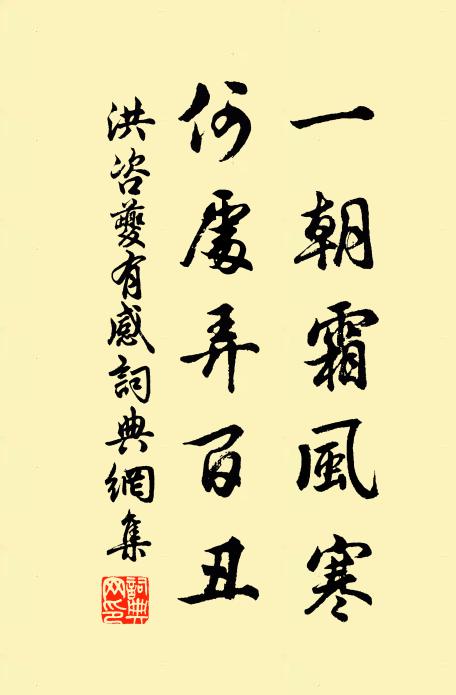 一朝霜風寒
何處弄百丑
洪咨夔有感詞典網集
詞典網印